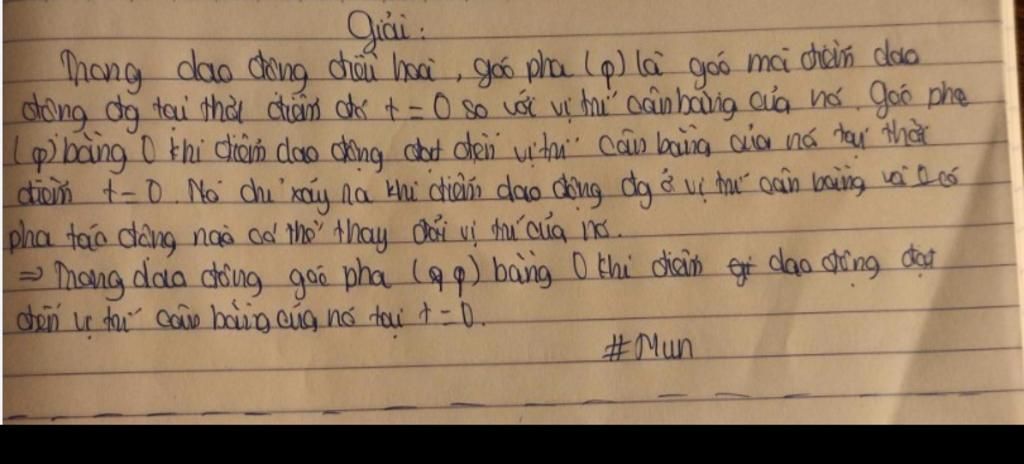 Giải:
Trong dao động điều hoà, góc pha (φ) là góc mà điểm dao
động đg tại thời điểm đó t = 0 so với vị trí cân bằng của nó. Góc pha
(φ) bằng 0 khi điểm dao động đạt đến vị trí cân bằng của nó tại thời
điểm t = 0. Nó chỉ xảy ra khi điểm dao động đg ở vị trí cân bằng và 0 có
pha tác động nào có thể thay đổi vị trí của nó.
⇒ Trong dao động góc pha (φ) bằng 0 khi điểm dao động đạt
đến vị trí cân bằng của nó tại t = 0.
#Mun